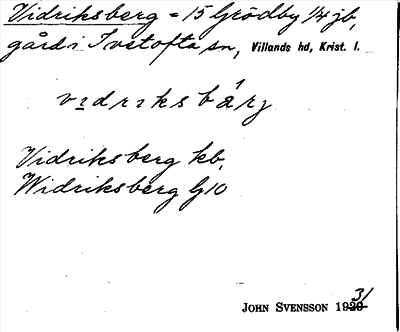 Vidriksberg = 15 Grödby 1/4 jb,
gård i Ivetofta sn, Villands hd, Krist. l.
vidriksbárj
Vidriksberg kb,
Widriksberg G10
JOHN SVENSSON 1929 31